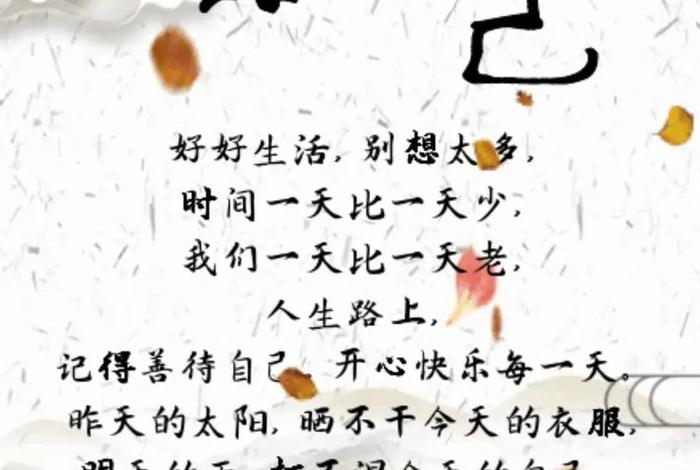 己
好好生活,别想太多,
时间一天比一天少,
我们一天比一天老,
人生路上,
记得善待自己。开心快乐每一天。
昨天的太阳,晒不干今天的衣服,